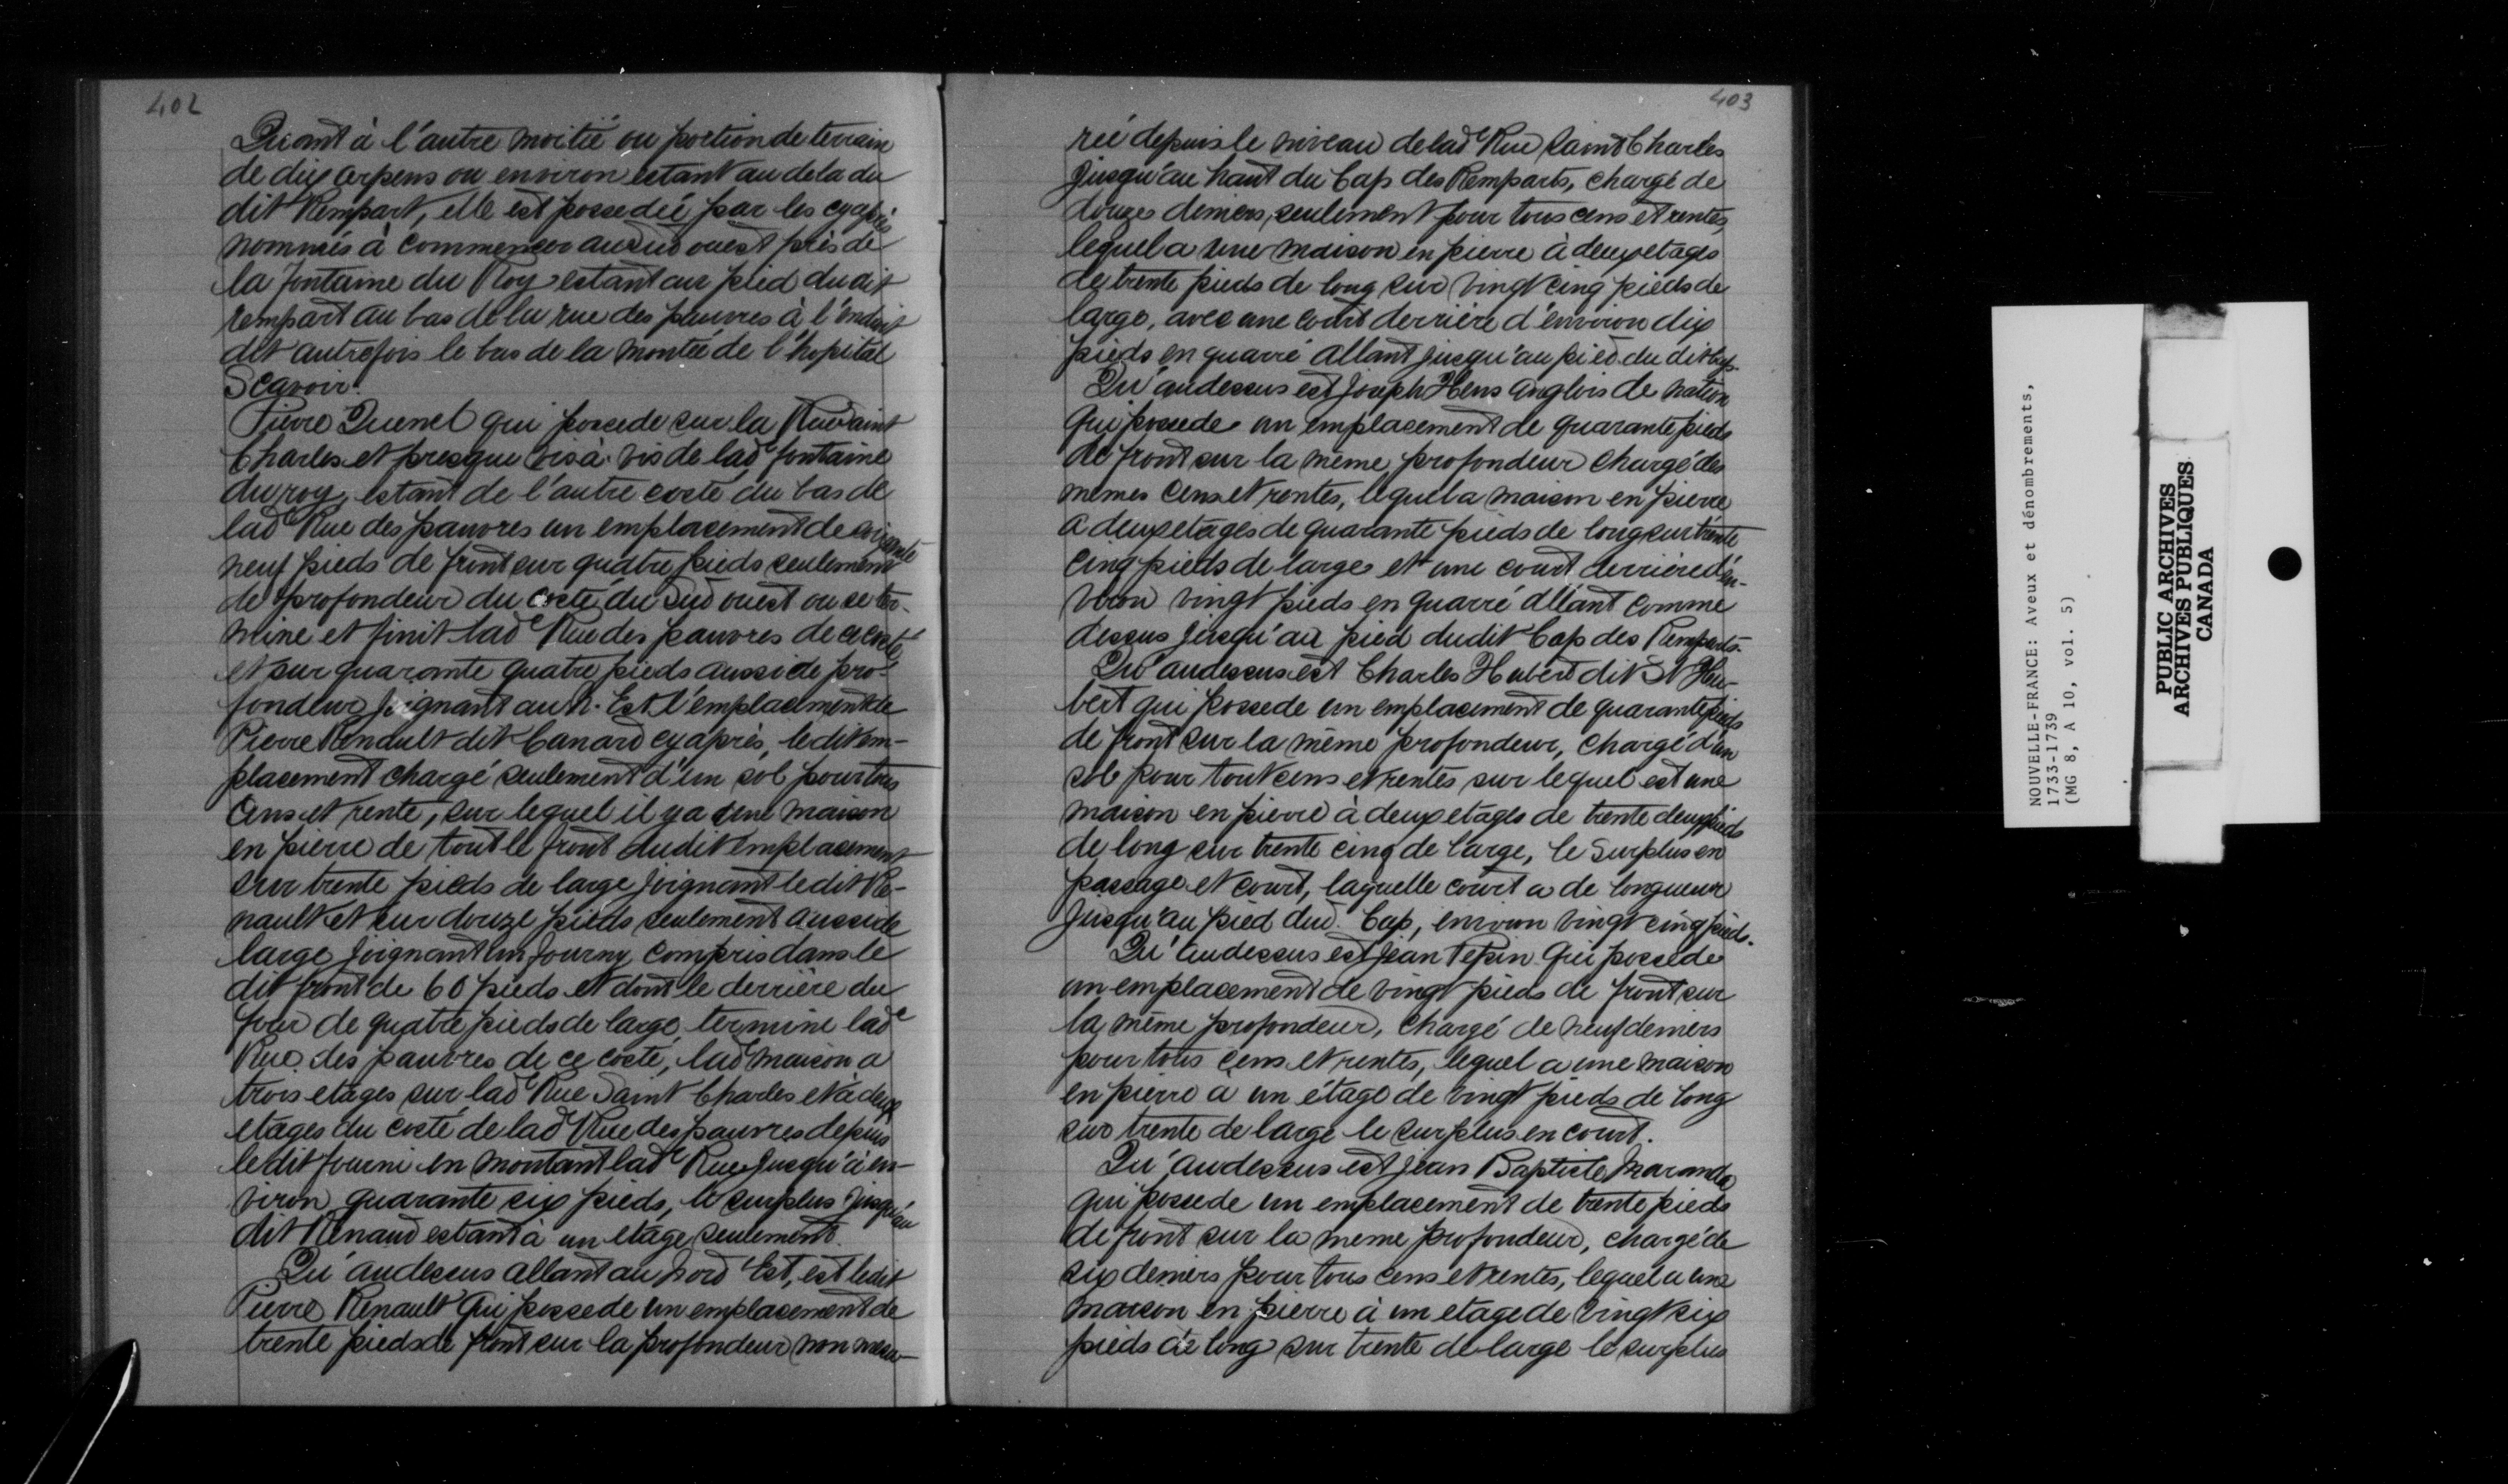 402
Quant à l'autre moitié ou portion de terrain
de dix arpens ou environ estant au dela du
dit Rempart, elle est possedée par les cyaprès
nommés à commencer au sud ouest près de
la fontaine du Roy estant au pied dudit
rempart au bas de la rue des pauvres à l'endroit
dit autrefois le bas de la montée de l'hopital
Scavoir.
Pierre Quenel qui possede sur la Rue Saint
Charles et presque vis à vis de lade fontaine
du roy, estant de l'autre costé du bas de
lade Rue des pauvres un emplacement de soixante
neuf pieds de front sur quatre pieds seulement
de profondeur du costé du Sud ouest ou se ter-
mine et finit lade Rue des pauvres de ce costé
et sur quarante quatre pieds aussi de pro-
fondeur joignant au N. Est l'emplacement de
Pierre Renault dit Canard cy après, ledit em-
placement chargé seulement d'un sol pour tous
Cens et rente, sur lequel il y a une maison
en pierre de tout le front dudit emplacement
sur trente pieds de large joignant ledit Re-
nault et sur douze pieds seulement aussi de
large joignant un fourny compris dans le
dit front de 60 pieds et dont le derrière du
four de quatre pieds de large termine lade
Rue des pauvres de ce costé, lade maison a
trois etages sur lade Rue Saint Charles et à deux
etages du costé de lade Rue des pauvres depuis
ledit fourni en montant lade Rue jusqu'à en-
viron quarante six pieds, le surplus jusqu'au
dit Renaud estant à un etage seulement.
Qu'audessus allant au Nord Est, est ledit
Pierre Renault qui possede un emplacement de
trente pieds de front sur la profondeur non mesu-
403
rée depuis le niveau de lade Rue Saint Charles
jusqu'au haut du Cap des Remparts, chargé de
douzes deniers, seulement pour tous cens et rentes,
lequel a une maison en pierre à deux etages
de trente pieds de long sur vingt cinq pieds de
large, avec une court derrière d'environ dix
pieds en quarré allant jusqu'au pied du dit Cap.
Qu'audessus est Joseph Hens anglois de nation
qui possede un emplacement de quarante pieds
de front sur la même profondeur chargé des
mêmes Cens et rentes, lequel a maison en pierre
a deux etages de quarante pieds de long sur trente
cinq pieds de large et une court derrière d'en-
viron vingt pieds en quarré allant comme
dessus jusqu'au pied dudit Cap des Remparts.
Qu'audessus est Charles Hubert dit St Hu-
bert qui possede un emplacement de quarante pieds
de front sur la même profondeur, chargé d'un
sol pour tout cens et rentes sur lequel est une
maison en pierre à deux etages de trente deux pieds
de long sur trente cinq de large, le Surplus en
passage et court, laquelle court a de longueur
jusqu'au pied dud. Cap, environ vingt cinq pieds.
Qu'audessus est Jean Pepin qui possede
un emplacement de vingt pieds de front sur
la même profondeur, chargé de neuf deniers
pour tous cens et rentes, lequel a une maison
en pierre à un étage de vingt pieds de long
sur trente de large le surplus en court.
Qu'audessus est Jean Baptiste Maranda
qui possede un emplacement de trente pieds
de front sur la meme profondeur, chargé de
six deniers pour tous cens et rentes, lequel a une
maison en pierre à un etage de vingt six
pieds de long sur trente de large le surplus
NOUVELLE-FRANCE: Aveux et dénombrements,
1733-1739
(MG 8, A 10, vol. 5)
PUBLIC ARCHIVES
ARCHIVES PUBLIQUES
CANADA